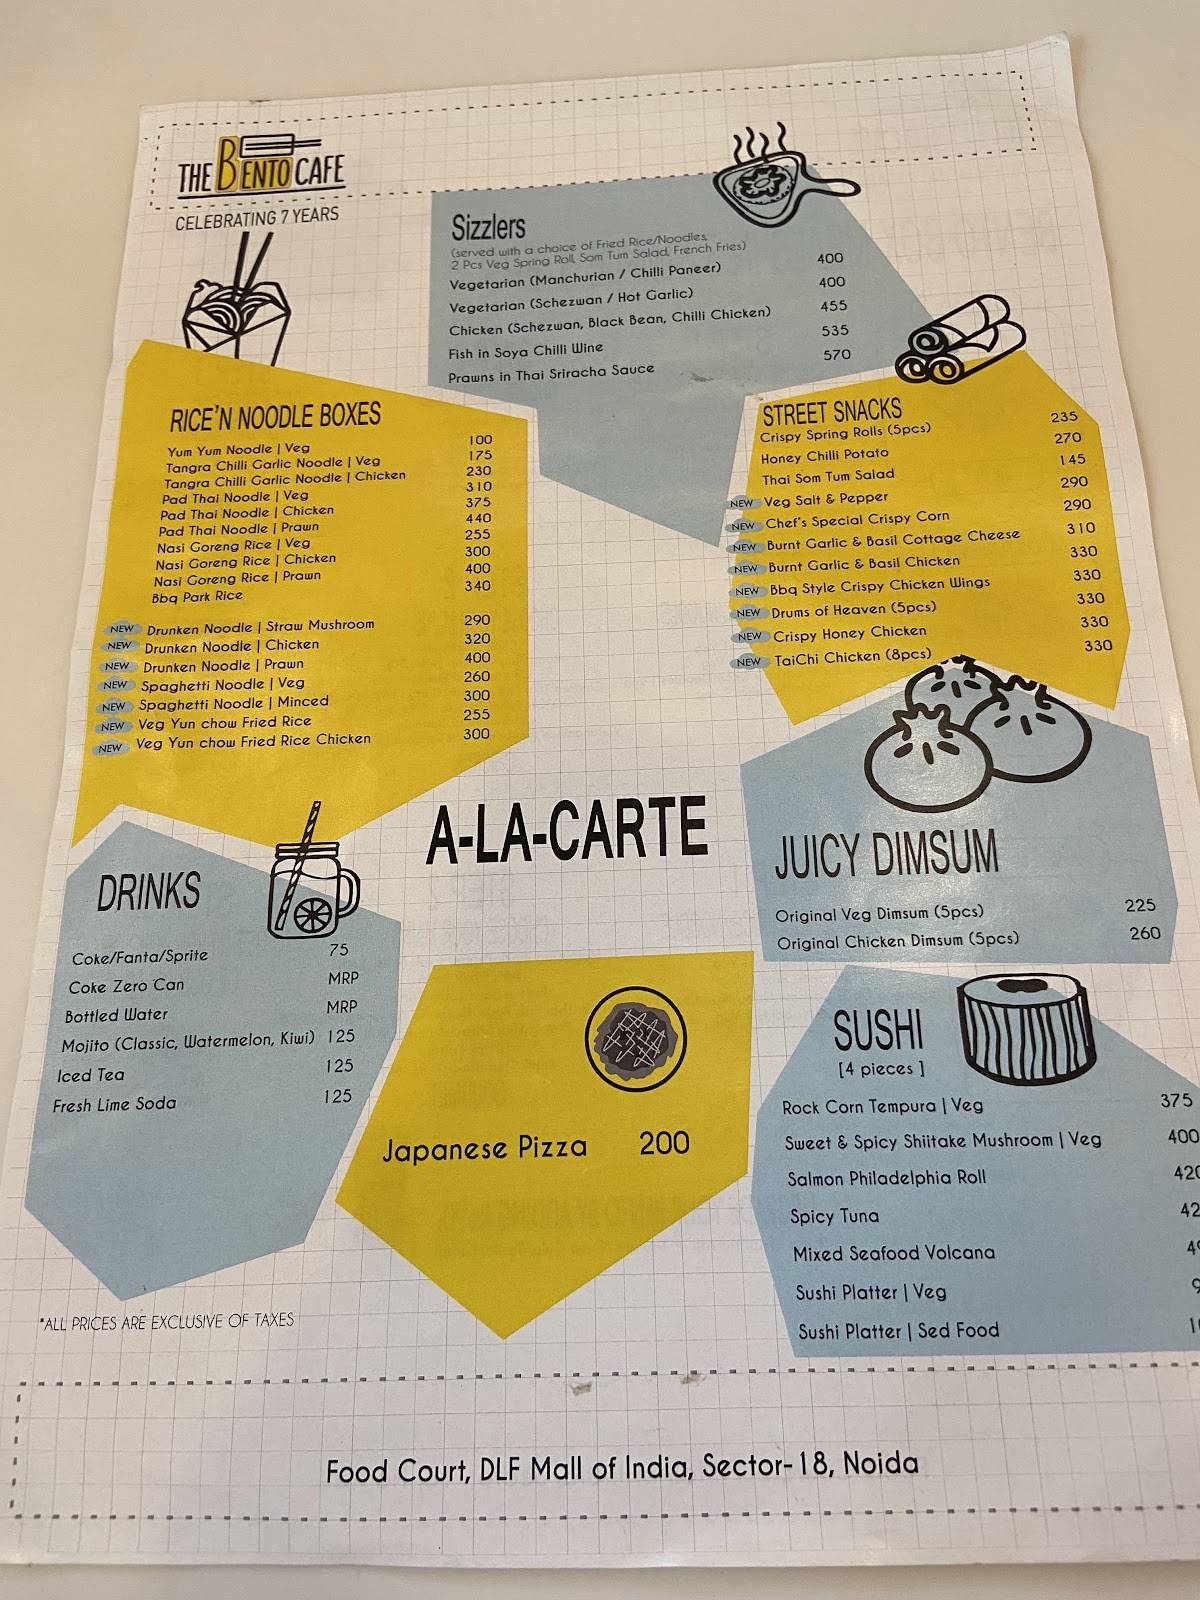 THE BENTO CAFE
CELEBRATING 7 YEARS
Sizzlers
(served with a choice of Fried Rice/Noodles,
2 Pcs Veg Spring Roll, Som Tum Salad, French Fries)
Vegetarian (Manchurian / Chilli Paneer) 400
Vegetarian (Schezwan / Hot Garlic) 400
Chicken (Schezwan, Black Bean, Chilli Chicken) 455
Fish in Soya Chilli Wine 535
Prawns in Thai Sriracha Sauce 570
RICE'N NOODLE BOXES
Yum Yum Noodle | Veg 100
Tangra Chilli Garlic Noodle | Veg 175
Tangra Chilli Garlic Noodle | Chicken 230
Pad Thai Noodle | Veg 310
Pad Thai Noodle | Chicken 375
Pad Thai Noodle | Prawn 440
Nasi Goreng Rice | Veg 255
Nasi Goreng Rice | Chicken 300
Nasi Goreng Rice | Prawn 400
Bbq Park Rice 340
NEW Drunken Noodle | Straw Mushroom 290
NEW Drunken Noodle | Chicken 320
NEW Drunken Noodle | Prawn 400
NEW Spaghetti Noodle | Veg 260
NEW Spaghetti Noodle | Minced 300
NEW Veg Yun chow Fried Rice 255
NEW Veg Yun chow Fried Rice Chicken 300
STREET SNACKS
Crispy Spring Rolls (5pcs) 235
Honey Chilli Potato 270
Thai Som Tum Salad 145
NEW Veg Salt & Pepper 290
NEW Chef's Special Crispy Corn 290
NEW Burnt Garlic & Basil Cottage Cheese 310
NEW Burnt Garlic & Basil Chicken 330
NEW Bbq Style Crispy Chicken Wings 330
NEW Drums of Heaven (5pcs) 330
NEW Crispy Honey Chicken 330
NEW TaiChi Chicken (8pcs) 330
A-LA-CARTE
JUICY DIMSUM
Original Veg Dimsum (5pcs) 225
Original Chicken Dimsum (5pcs) 260
DRINKS
Coke/Fanta/Sprite 75
Coke Zero Can MRP
Bottled Water MRP
Mojito (Classic, Watermelon, Kiwi) 125
Iced Tea 125
Fresh Lime Soda 125
Japanese Pizza 200
SUSHI
[4 pieces ]
Rock Corn Tempura | Veg 375
Sweet & Spicy Shiitake Mushroom | Veg 400
Salmon Philadelphia Roll 420
Spicy Tuna 42
Mixed Seafood Volcana 4
Sushi Platter | Veg
Sushi Platter | Sed Food
*ALL PRICES ARE EXCLUSIVE OF TAXES
Food Court, DLF Mall of India, Sector-18, Noida